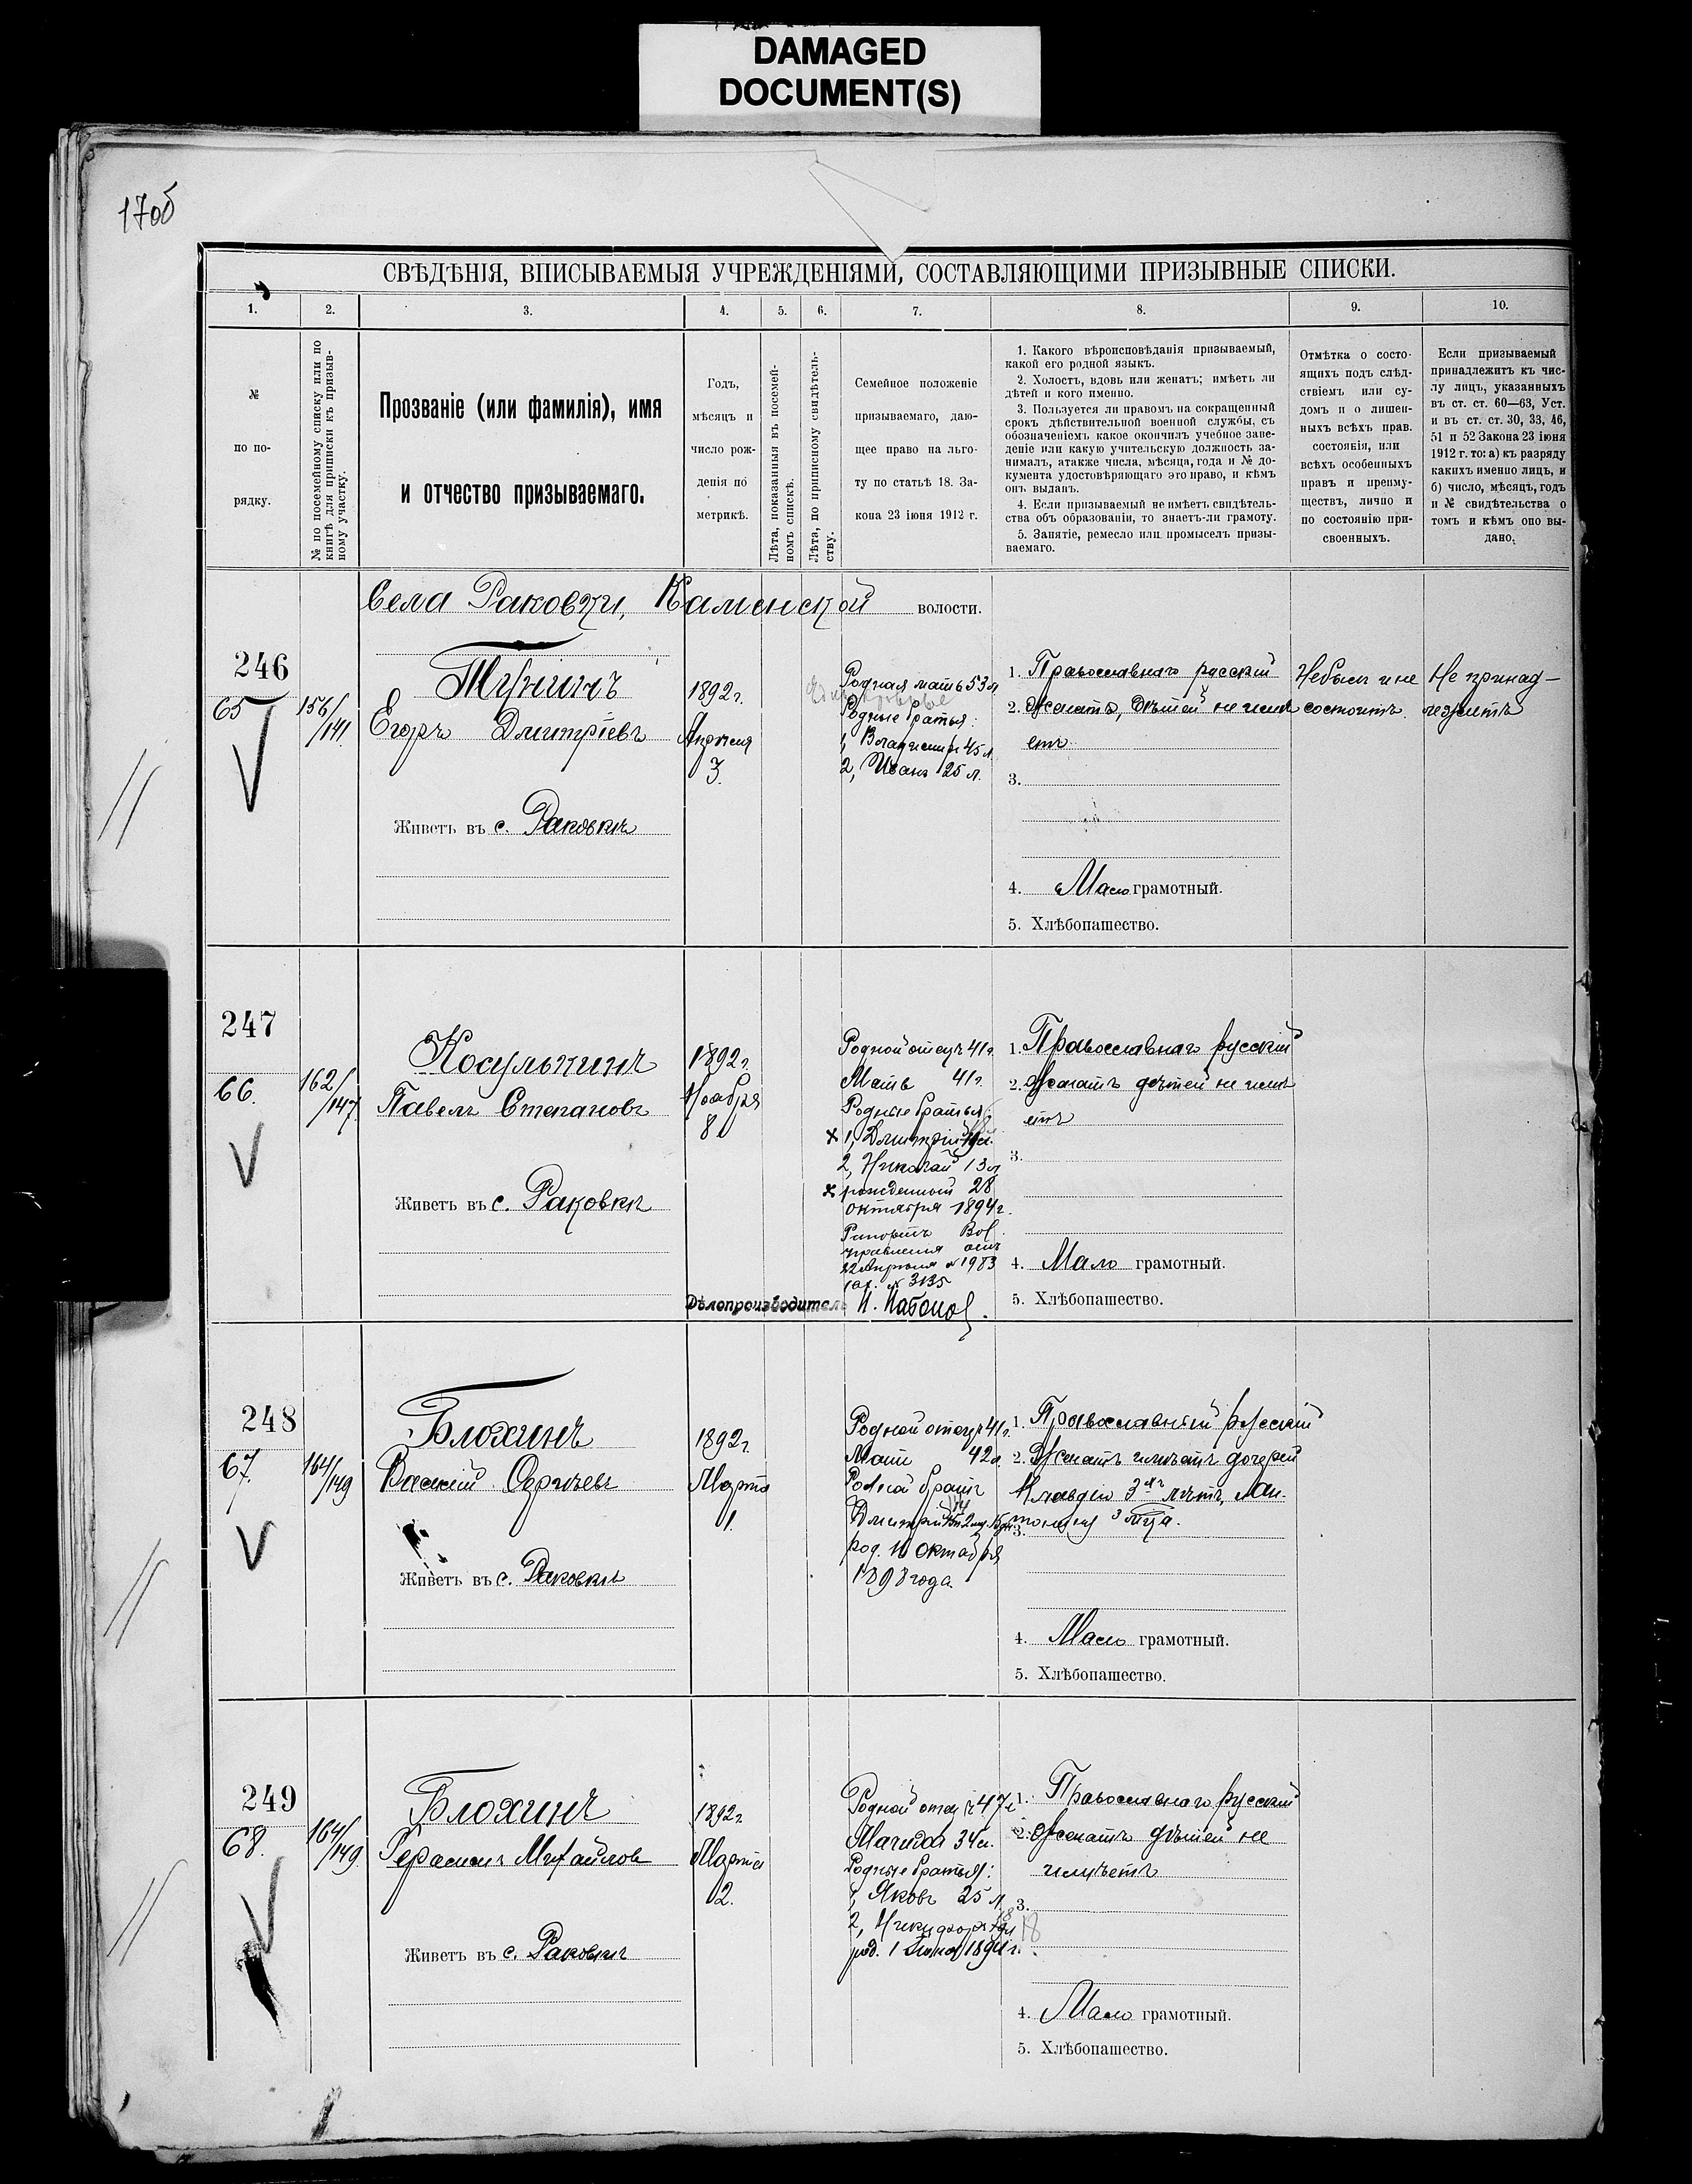 DAMAGED
DOCUMENT(S)
17об
СВѢДѢНІЯ, ВПИСЫВАЕМЫЯ УЧРЕЖДЕНІЯМИ, СОСТАВЛЯЮЩИМИ ПРИЗЫВНЫЕ СПИСКИ.
1. 2. 3. 4. 5. 6. 7. 8. 9. 10.
№
по по-
рядку.
№ по посемейному списку или по
книгѣ для приписки къ призыв-
ному участку.
Прозваніе (или фамилія), имя
и отчество призываемаго.
Годъ,
мѣсяцъ и
число рож-
денія по
метрикѣ.
Лѣта, показанныя въ посемей-
номъ спискѣ.
Лѣта, по приписному свидѣтель-
ству.
Семейное положеніе
призываемаго, даю-
щее право на льго-
ту по статьѣ 18. За-
кона 23 іюня 1912 г.
1. Какого вѣроисповѣданія призываемый,
какой его родной языкъ.
2. Холостъ, вдовъ или женатъ; имѣетъ ли
дѣтей и кого именно.
3. Пользуется ли правомъ на сокращенный
срокъ дѣйствительной военной службы, съ
обозначеніемъ какое окончилъ учебное заве-
деніе или какую учительскую должность за-
нималъ, а также числа, мѣсяца, года и № до-
кумента удостовѣряющаго это право, и кѣмъ
онъ выданъ.
4. Если призываемый не имѣетъ свидѣтель-
ства объ образованіи, то знаетъ-ли грамоту.
5. Занятіе, ремесло или промыселъ призы-
ваемаго.
Отмѣтка о состо-
ящихъ подъ слѣд-
ствіемъ или су-
домъ и о лишен-
ныхъ всѣхъ прав.
состоянія, или
всѣхъ особенныхъ
правъ и преиму-
ществъ, лично и
по состоянію при-
своенныхъ.
Если призываемый
принадлежитъ къ чис-
лу лицъ, указанныхъ
въ ст. ст. 60—63, Уст.
и въ ст. ст. 30, 33, 46,
51 и 52 Закона 23 іюня
1912 г. то: а) къ разряду
какихъ именно лицъ, и
б) число, мѣсяцъ, годъ
и № свидѣтельства о
томъ и кѣмъ оно вы-
дано.
Села Раковки, Каменской волости.
246
65
156/141
Егоръ Дмитріевъ
Живетъ въ с. Раковки
1892 г.
Апрѣля
3.
Родная мать 53 л
Родные братья:
1, Владимиръ 45 л
2, Иванъ 25 л.
1. Православнаго русскій
2. Женатъ, дѣтей не имѣ
етъ
3.
4. Мало грамотный.
5. Хлѣбопашество.
Небылъ и не
состоитъ
Не принад-
лежитъ
247
66.
162/147
Косулькинъ
Павелъ Степановъ
Живетъ въ с. Раковки
1892 г.
Ноября
8
Родной отецъ 41 г.
Мать 41 г.
Родные братья:
х 1, Дмитрій
2, Николай 13 л
х рожденный 28
октября 1894 г.
Рапортъ Вол.
правленія отъ
22 Апрѣля № 1983
вх. № 3135
Дѣлопроизводитель
1. Православнаго русскій
2. Женатъ дѣтей не имѣ
етъ
3.
4. Мало грамотный.
5. Хлѣбопашество.
248
67.
164/149
Блохинъ
Василій Сергѣевъ
Живетъ въ с. Раковки
1892 г.
Марта
1.
Родной отецъ 41 г.
Мать 42 л.
Родной братъ
Дмитрій
род. 11 Октября
1898 года.
1. Православный русскій
2. Женатъ имѣетъ дочерей
Клавдію 3хъ лѣтъ, Ан-
тонину 3 м-ца.
3.
4. Мало грамотный.
5. Хлѣбопашество.
249
68.
164/149
Блохинъ
Герасимъ Михайловъ
Живетъ въ с. Раковки
1892 г.
Марта
2.
Родной отецъ 47 л
Мачиха 34 л.
Родные братья:
1, Яковъ 25 л.
2, Никифоръ 18
род. 1 Іюня 1894 г.
18
1. Православнаго русскій
2. Женатъ дѣтей не
имѣетъ
3.
4. Мало грамотный.
5. Хлѣбопашество.